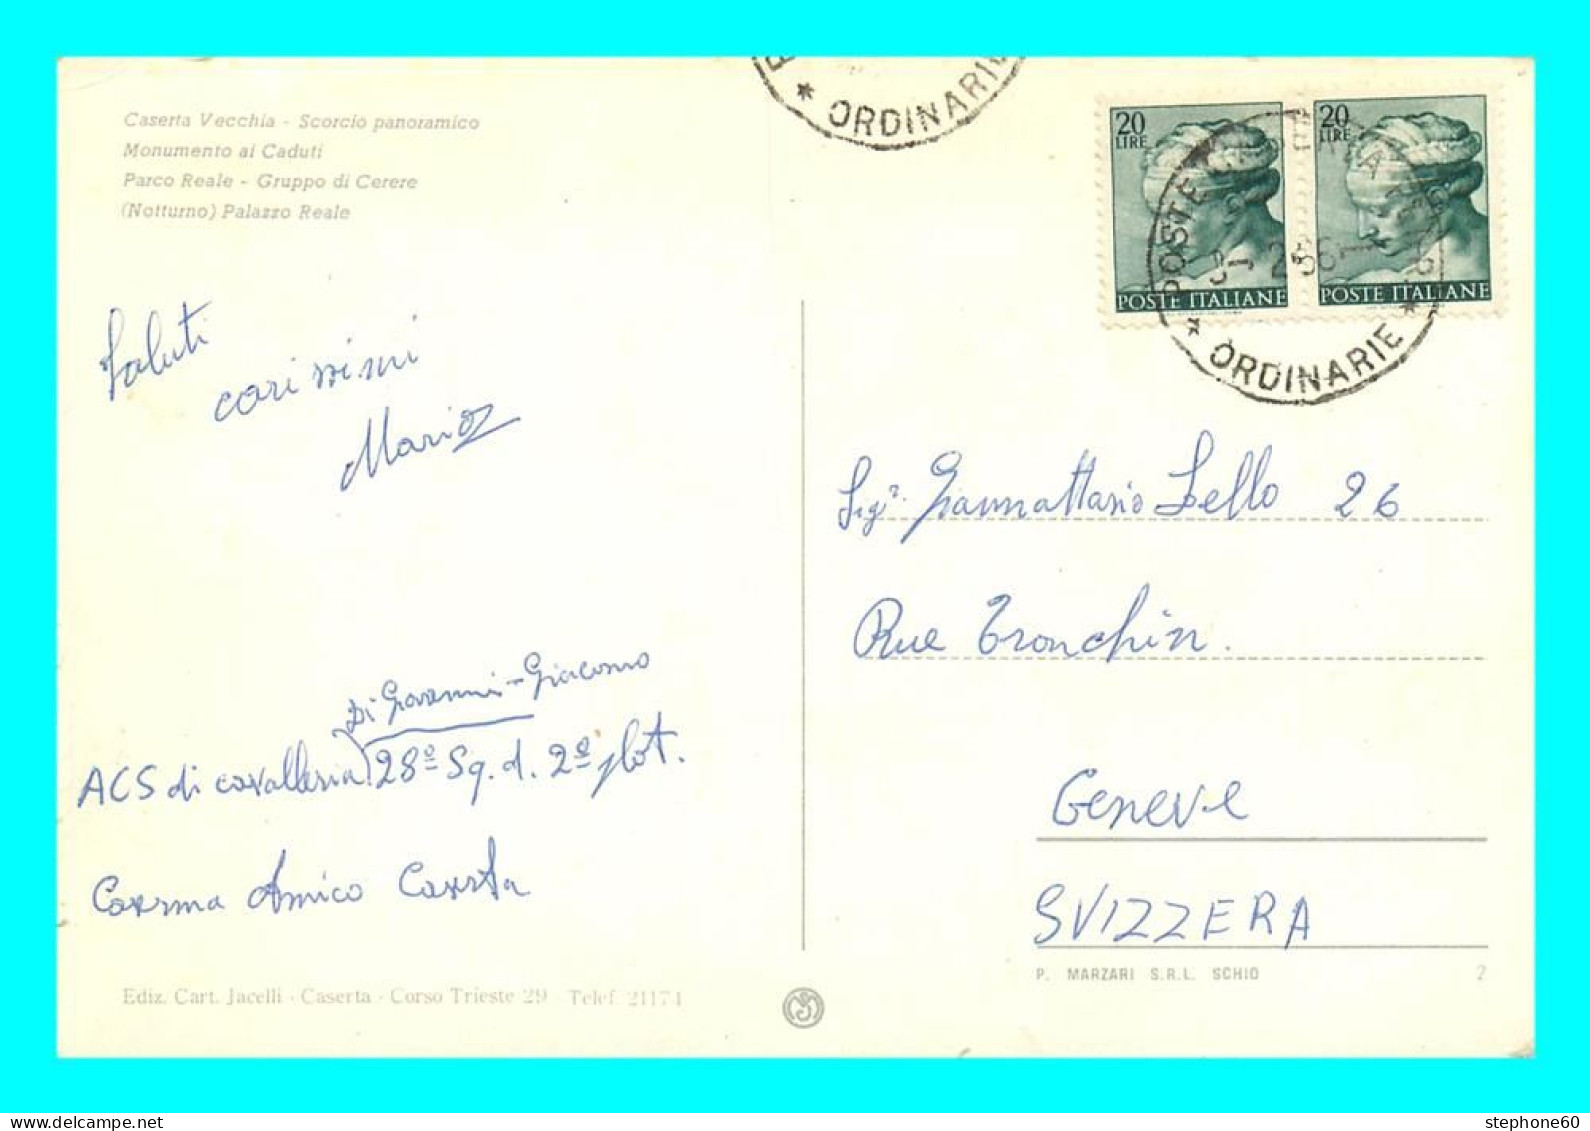 Caserta Vecchia - Scorcio panoramico
Monumento ai Caduti
Parco Reale - Gruppo di Cerere
(Notturno) Palazzo Reale
Saluti
carissimi
Mario
Di Giovanni - Giacomo
ACS di cavalleria 28º Sq. d. 2º plot.
Caserma Amico Caserta
Ediz. Cart. Jacelli - Caserta - Corso Trieste 29 - Telef. 21174
* ORDINARIE
20 LIRE
POSTE ITALIANE
20 LIRE
POSTE ITALIANE
POSTE
* ORDINARIE *
Sigr. Giannattasio Lello 26
Rue Tronchin.
Geneve
SVIZZERA
P. MARZARI S.R.L. SCHIO 2
stephone60